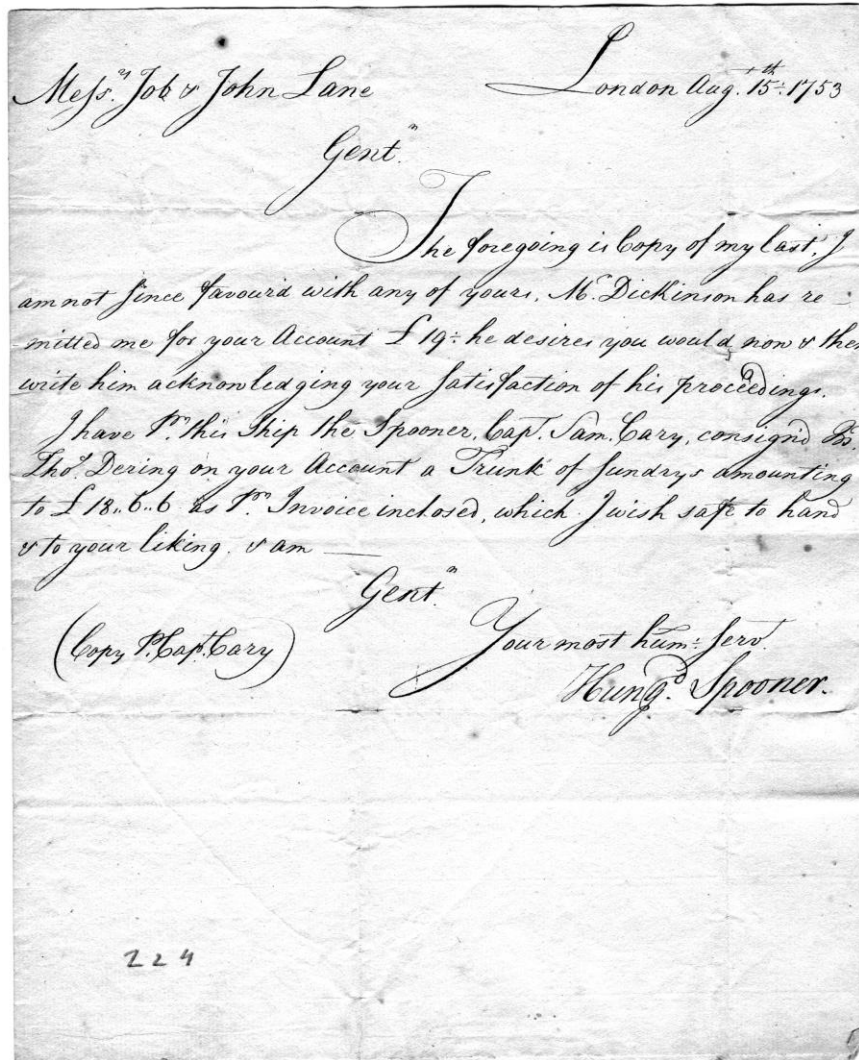 Messrs. Job & John Lane London Aug. 15th: 1753
Gentn.
The foregoing is Copy of my last, I
am not since favour'd with any of yours, Mr. Dickinson has re
mitted me for your Account £19:- he desires you would now & then
write him acknowledging your satisfaction of his proceedings.
I have Pr. this Ship the Spooner, Capt. Sam. Cary, consign'd Mr.
Thos. Dering on your Account a Trunk of Sundrys amounting
to £18..6..6 as Pr. Invoice inclosed, which I wish safe to hand
& to your liking. & am —
Gentn.
(Copy P. Capt. Cary) Your most hum: Servt.
Hungd. Spooner.
224